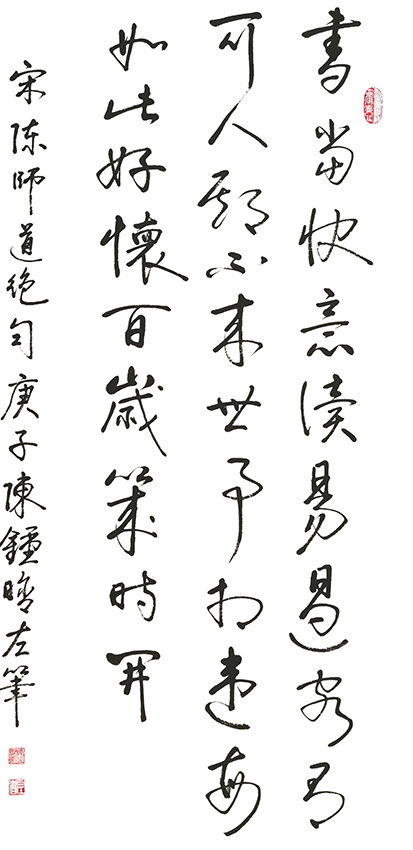 書當快意读易客有
可人期不来世事相違每
如此好懷百歲幾時開
宋陈師道絕句庚子陳鍾左筆